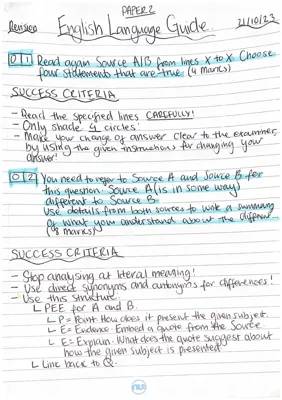 PAPER 2
Revision English Language Guide 21/10/23
01 Read again Source A/B from lines X to X. Choose
four statements that are true. (4 marks)
SUCCESS CRITERIA
- Read the specified lines CAREFULLY!
- Only shade 4 circles!
- Make your change of answer clear to the examiner
by using the given instructions for changing your
answer!
02 You need to refer to Source A and Source B for
this question. Source A (is in some way)
different to Source B.
Use details from both sources to write a summary
of what you understand about the different
(8 marks)
SUCCESS CRITERIA
- Stop analysing at literal meaning!
- Use direct synonyms and antonyms for differences!
- Use this structure
L PEE for A and B.
L P = Point: How does it present the given subject.
L E = Evidence: Embed a quote from the Source
L E = Explain: What does the quote suggest about
how the given subject is presented
L Link back to Q.